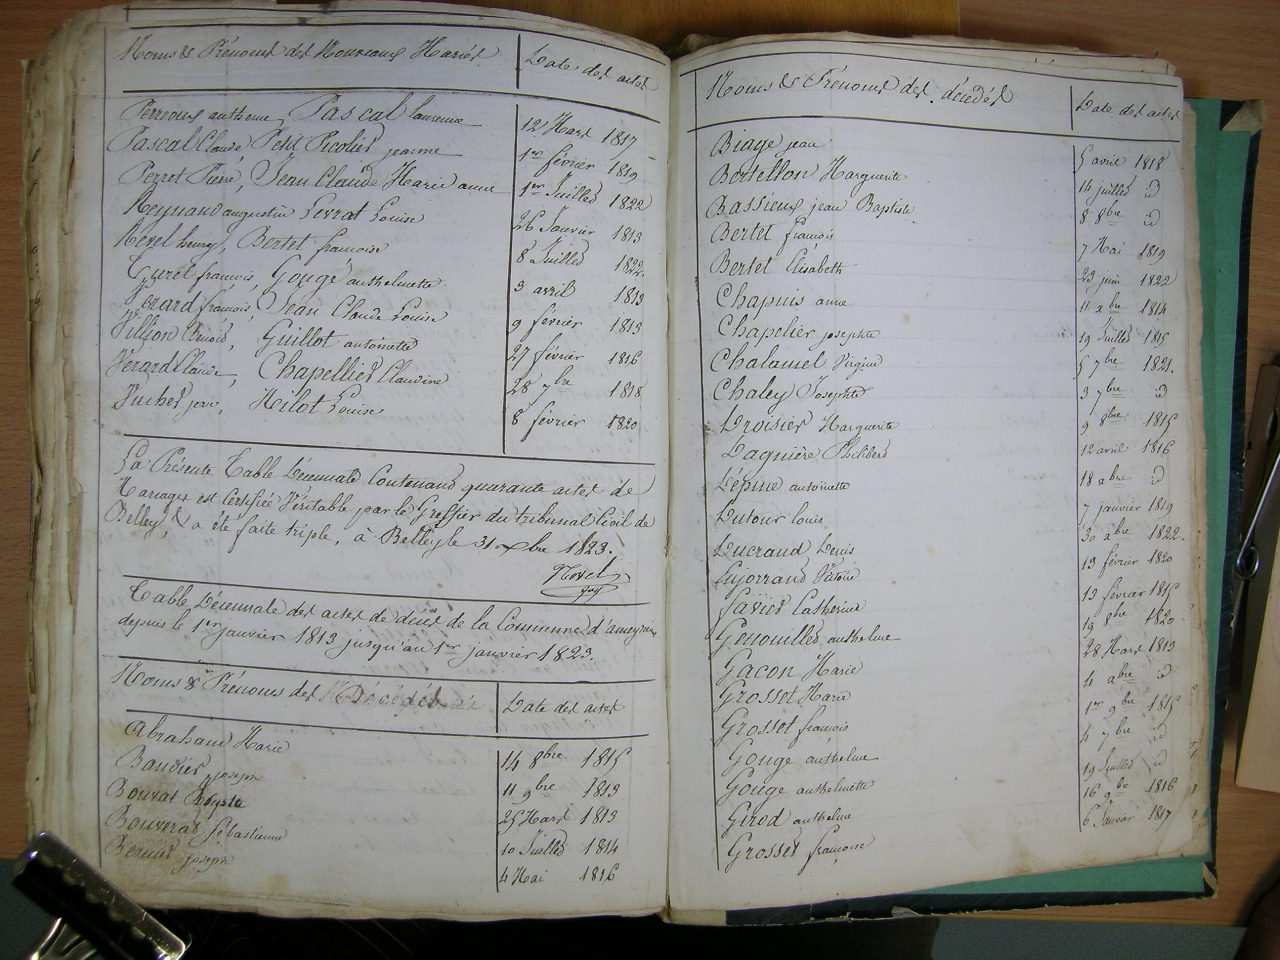 Noms & Prénoms des Nouveaux Mariés Date des actes
Perreoux anthelme, Pascal laurence 12 Mars 1817
Pascal Claude Petit Picolier jeanne 1er février 1819
Perret Pierre, Jean Claude Marie anne 1er Juillet 1822
Reynaud augustin Perrat Louise 26 Janvier 1813
Revel henry, Bertet francoise 8 Juillet 1822.
Turel francois, Gougé anthelmette 3 avril 1813
Gerard francois, Jean Claude Louise 9 février 1813
Villion Benoit, Guillot antoinette 27 février 1816
Verard Claude, Chapellier Claudine 28 7bre 1818
Vucher jean, Milot Louise 8 février 1820
La Présente Table Décennale Contenand quarante actes de
Mariages est Certifiée Véritable par le Greffier du tribunal Civil de
Belley, & a été faite triple, à Belley le 31 xbre 1823.
Table Décennale des actes de décès de la Commune d'ameyzieu
depuis le 1er janvier 1813 jusqu'au 1er janvier 1823.
Noms & Prénoms des Décédés Date des actes
Abraham Marie 14 8bre 1815
Baudier joseph 11 9bre 1813
Bourat 25 Mars 1813
Bouverat Sébastienne 10 Juillet 1814
Bernier joseph 4 Mai 1816
Noms & Prénoms des décédés Date des actes
Biage jean 5 avril 1818
Bertellon Marguerite 14 juillet id
Bassieux jean Baptiste 8 8bre id
Bertet francois 7 Mai 1819
Bertet Elisabeth 23 juin 1822
Chapuis anne 11 xbre 1814
Chapelier josephte 19 Juillet 1815
Chalamel Virginie 5 7bre 1821.
Chaley Josephte 3 7bre id
Droisier Marguerite 9 8bre 1815
Dagnière Philibert 12 avril 1816
Dépine antoinette 18 xbre id
Dutour louis 7 janvier 1819
Ducraud Denis 30 xbre 1822.
Dujorrand Victoire 13 février 1820
Favier Catherine 13 février 1815
Genouillet anthelme 19 8bre 1820
Gacon Marie 28 Mars 1813
Grosset Marie 4 xbre id
Grosset francois 1er 9bre 1815
Gouge anthelme 4 7bre id
Gouge anthelmette 19 Juillet id
Girod anthelme 16 9bre 1816
Grosset francoise 6 Janvier 1817